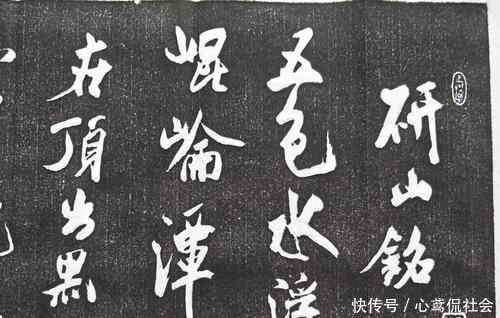 研山銘
五色水浮
崐崘潭
在頂出黑
快传号／心鸢侃社会